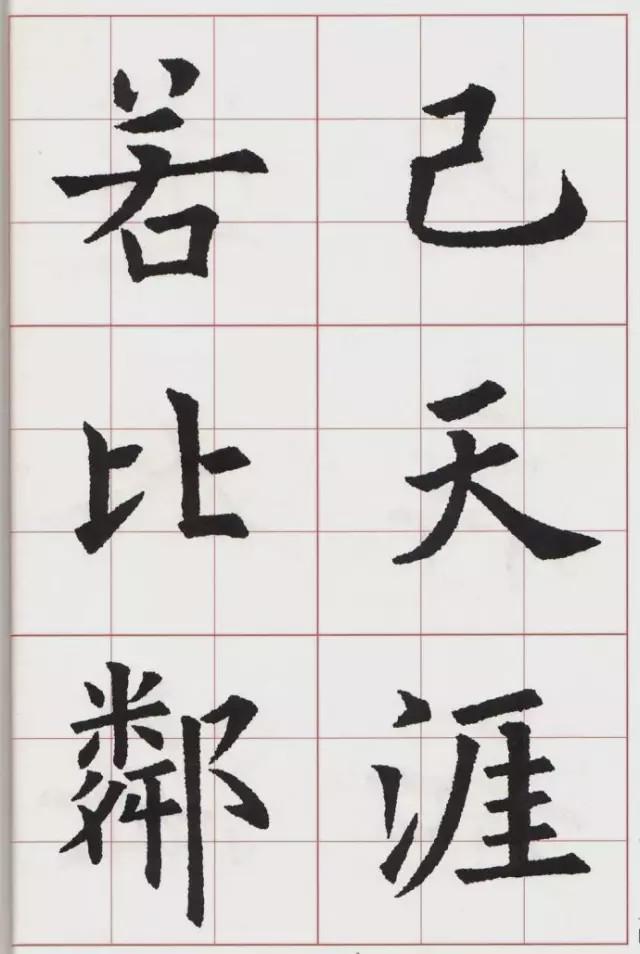 己天涯
若比鄰